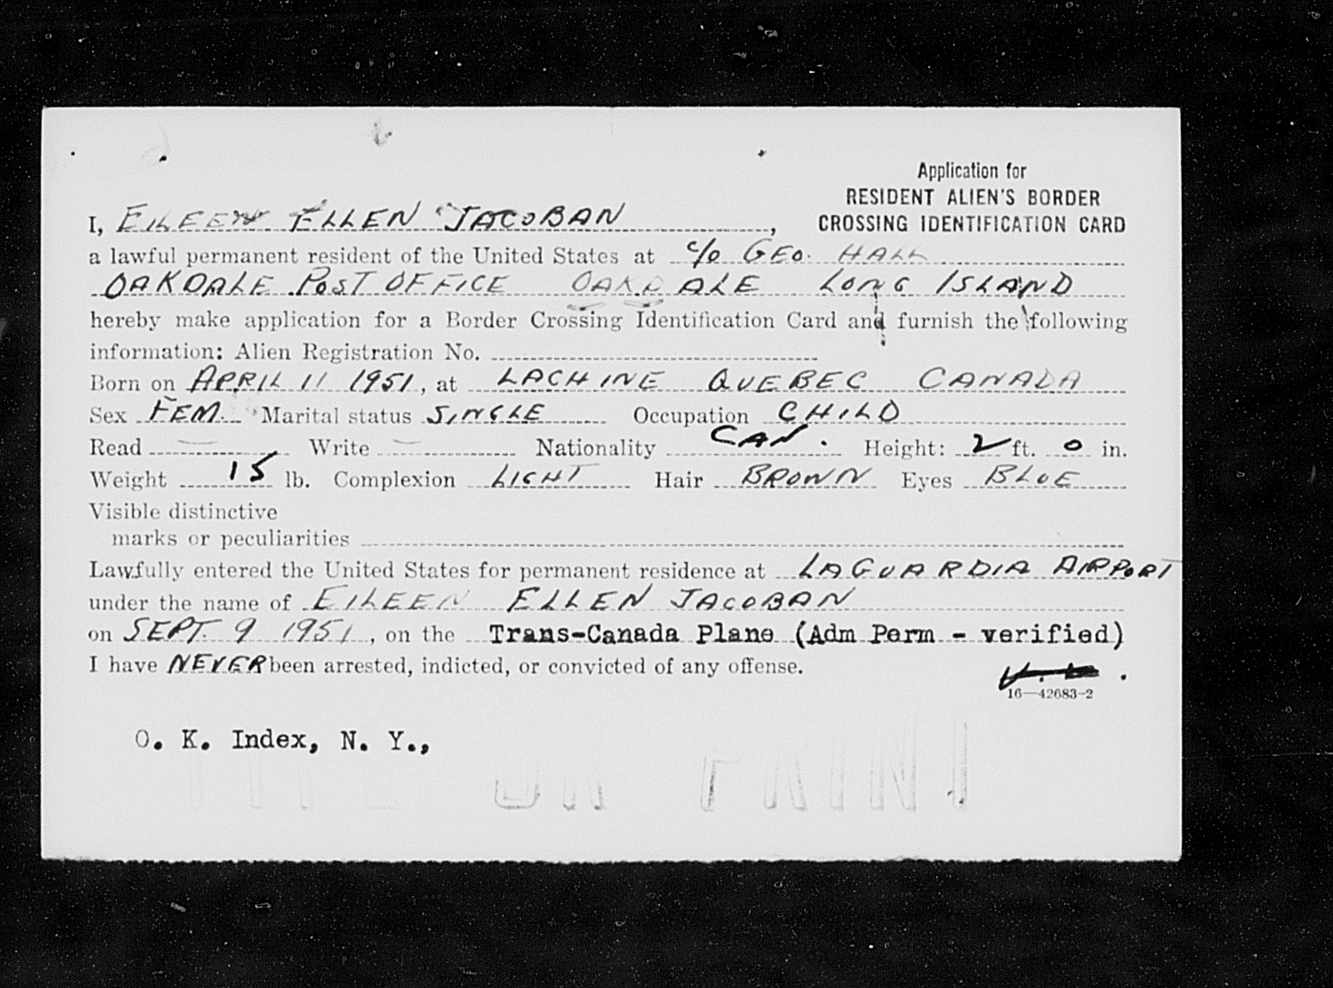 Application for
RESIDENT ALIEN'S BORDER
CROSSING IDENTIFICATION CARD
I, EILEEN ELLEN JACOBAN,
a lawful permanent resident of the United States at c/o GEO. HALL
OAKDALE POST OFFICE OAKDALE LONG ISLAND
hereby make application for a Border Crossing Identification Card and furnish the following
information: Alien Registration No.
Born on APRIL 11 1951, at LACHINE QUEBEC CANADA
Sex FEM. Marital status SINGLE Occupation CHILD
Read — Write — Nationality CAN. Height: 2 ft. 0 in.
Weight 15 lb. Complexion LIGHT Hair BROWN Eyes BLUE
Visible distinctive
marks or peculiarities
Lawfully entered the United States for permanent residence at LAGUARDIA AIRPORT
under the name of EILEEN ELLEN JACOBAN
on SEPT. 9 1951, on the Trans-Canada Plane (Adm Perm - verified)
I have NEVER been arrested, indicted, or convicted of any offense.
16—42683-2
O. K. Index, N. Y.,
OR PRINT